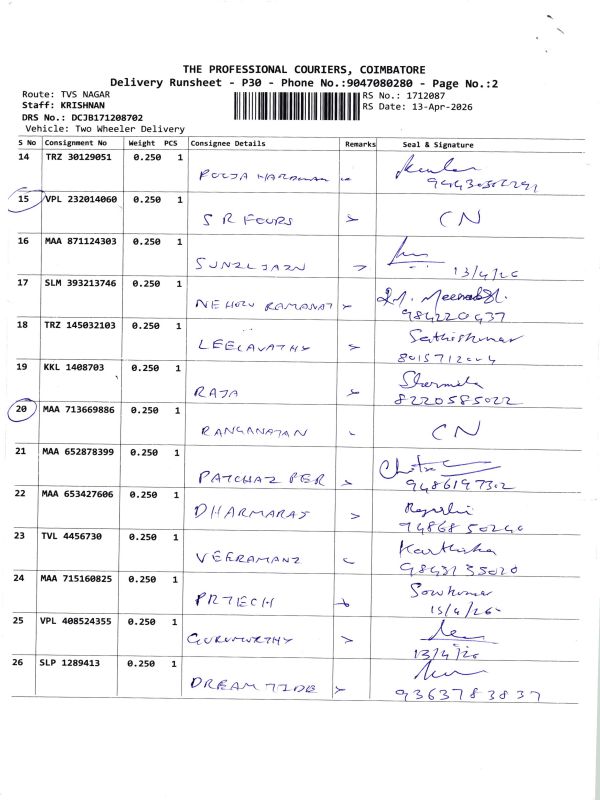 THE PROFESSIONAL COURIERS, COIMBATORE
Delivery Runsheet - P30 - Phone No.:9047080280 - Page No.:2
Route: TVS NAGAR
RS No.: 1712087
Staff: KRISHNAN
RS Date: 13-Apr-2026
DRS No.: DCJB171208702
Vehicle: Two Wheeler Delivery
S No Consignment No Weight PCS Consignee Details Remarks Seal & Signature
14 TRZ 30129051 0.250 1
POOJA
15 VPL 232014060 0.250 1
S R FOURS CN
16 MAA 871124303 0.250 1
SUNIL JAIN
13/4/26
17 SLM 393213746 0.250 1
NEHRU RAMANAT
984220437
18 TRZ 145032103 0.250 1
LEELAVATHY Sathishkumar
19 KKL 1408703 0.250 1
RAJA Sharmila
8220585022
20 MAA 713669886 0.250 1
RANGANATAN CN
21 MAA 652878399 0.250 1
PATCHAI PER Chitra
9486197302
22 MAA 653427606 0.250 1
DHARMARAJ
9486850240
23 TVL 4456730 0.250 1
VEERAMANI Karthika
9843135020
24 MAA 715160825 0.250 1
PRTECH
13/4/26
25 VPL 408524355 0.250 1
GURUMURTHY
13/4/26
26 SLP 1289413 0.250 1
DREAM TIDE
9363783837